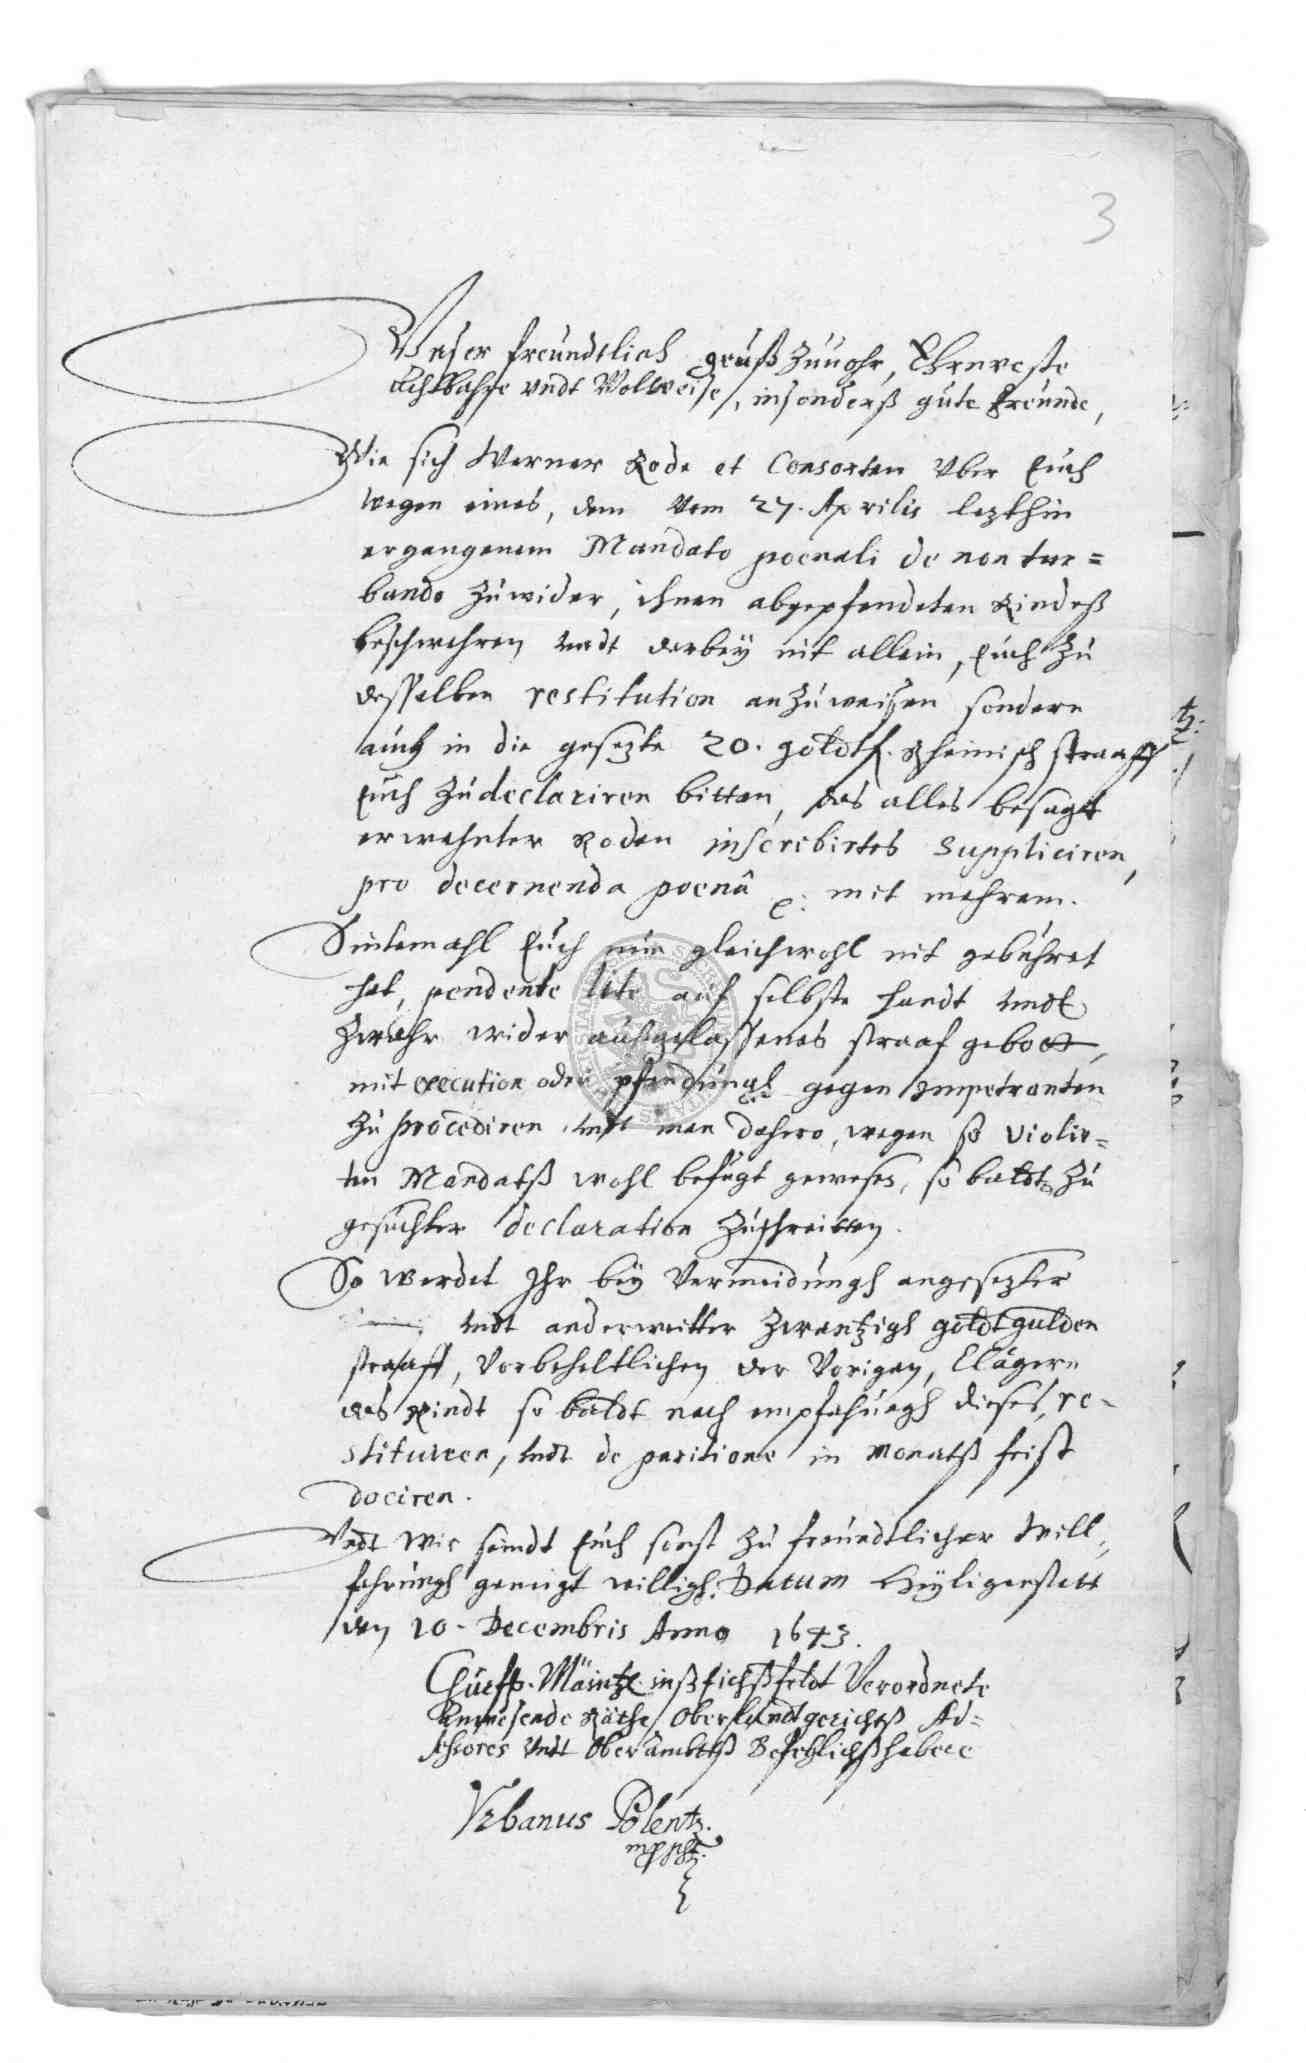 3
Vnser freundtlich gruß zuuohr, Ehrnveste
Achtbahre vndt Wolweise, insonderß gute freunde,
Wie sich Werner Rode et Consorten vber Euch
wegen eines, dem vom 27. Aprilis letzthin
ergangenem Mandato poenali de non tur=
bando zuwider, ihnen abgepfendeten Rindeß
beschwehren vndt darbey nit allein, Euch zu
desselben restitution anzuweisen sondern
auch in die gesezte 20. goldtf. Rheinisch straaff
Euch zu declariren bitten, das alles besagt
erwehnter Roden inscribirtes Suppliciren,
pro decernenda poenâ mit mehrem.
Sintemahl Euch nun gleichwohl nit gebühret
hat, pendente lite auf selbste handt vndt
zwahr wider außgelassenes straaf gebott,
mit execution oder pfandungh gegen Impetranten
zu procediren vndt man dahero, wegen so violir=
ten Mandatß wohl befugt gewesen, so baldt zu
gesuchter declaration zuschreitten.
So werdet Ihr bey Vermeidungh angesezter
vndt anderweitter zwantzigh goldtgulden
straaff, vorbeheltlichen der Vorigen, Clägern
das Rindt so baldt nach empfahungh dieses, re=
stituiren, vndt de paritione in Monatß frist
dociren.
Vndt wir seindt Euch sonst zu freundtlicher will=
fahrungh geneigt willigh. Datum Heyligenstatt
den 10. Decembris Anno 1643.
Churfp. Mäintz. inß Eichßfeldt Verordnete
Anwesende Räthe Oberlandtgerichtß As=
sessores vndt Oberambttß Befehlichßhabere
Vrbanus Polentz.
mpp